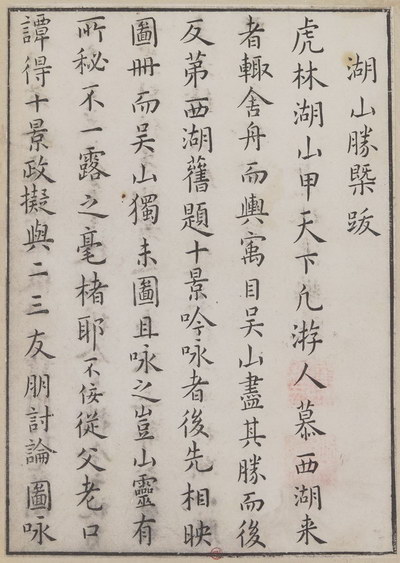 湖山勝槩跋
虎林湖山甲天下凡游人慕西湖来
者輙舍舟而輿寓目吴山盡其勝而後
反第西湖舊題十景吟咏者後先相映
圖冊而吴山獨未圖且咏之豈山靈有
所秘不一露之毫楮耶不佞從父老口
譚得十景政擬與二三友朋討論圖咏